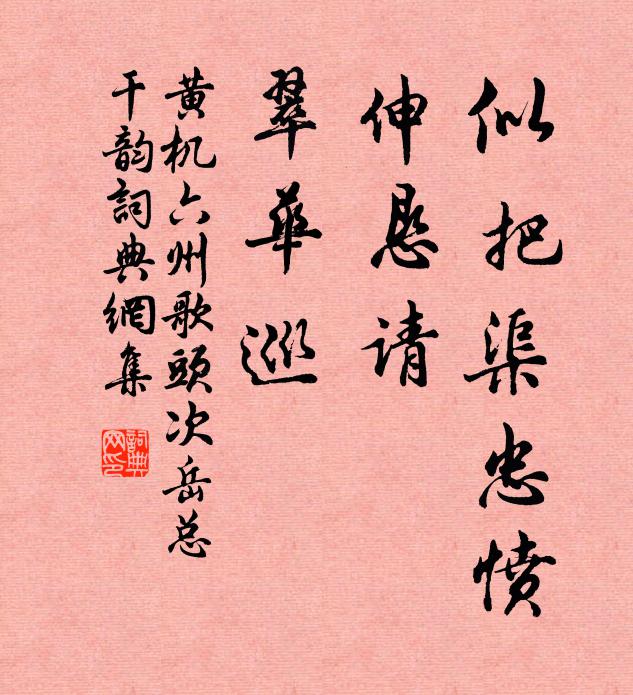 似把渠忠愤
伸恳请
翠华巡
黄机六州歌头次岳总
干韵詞典網集
詞典
网印